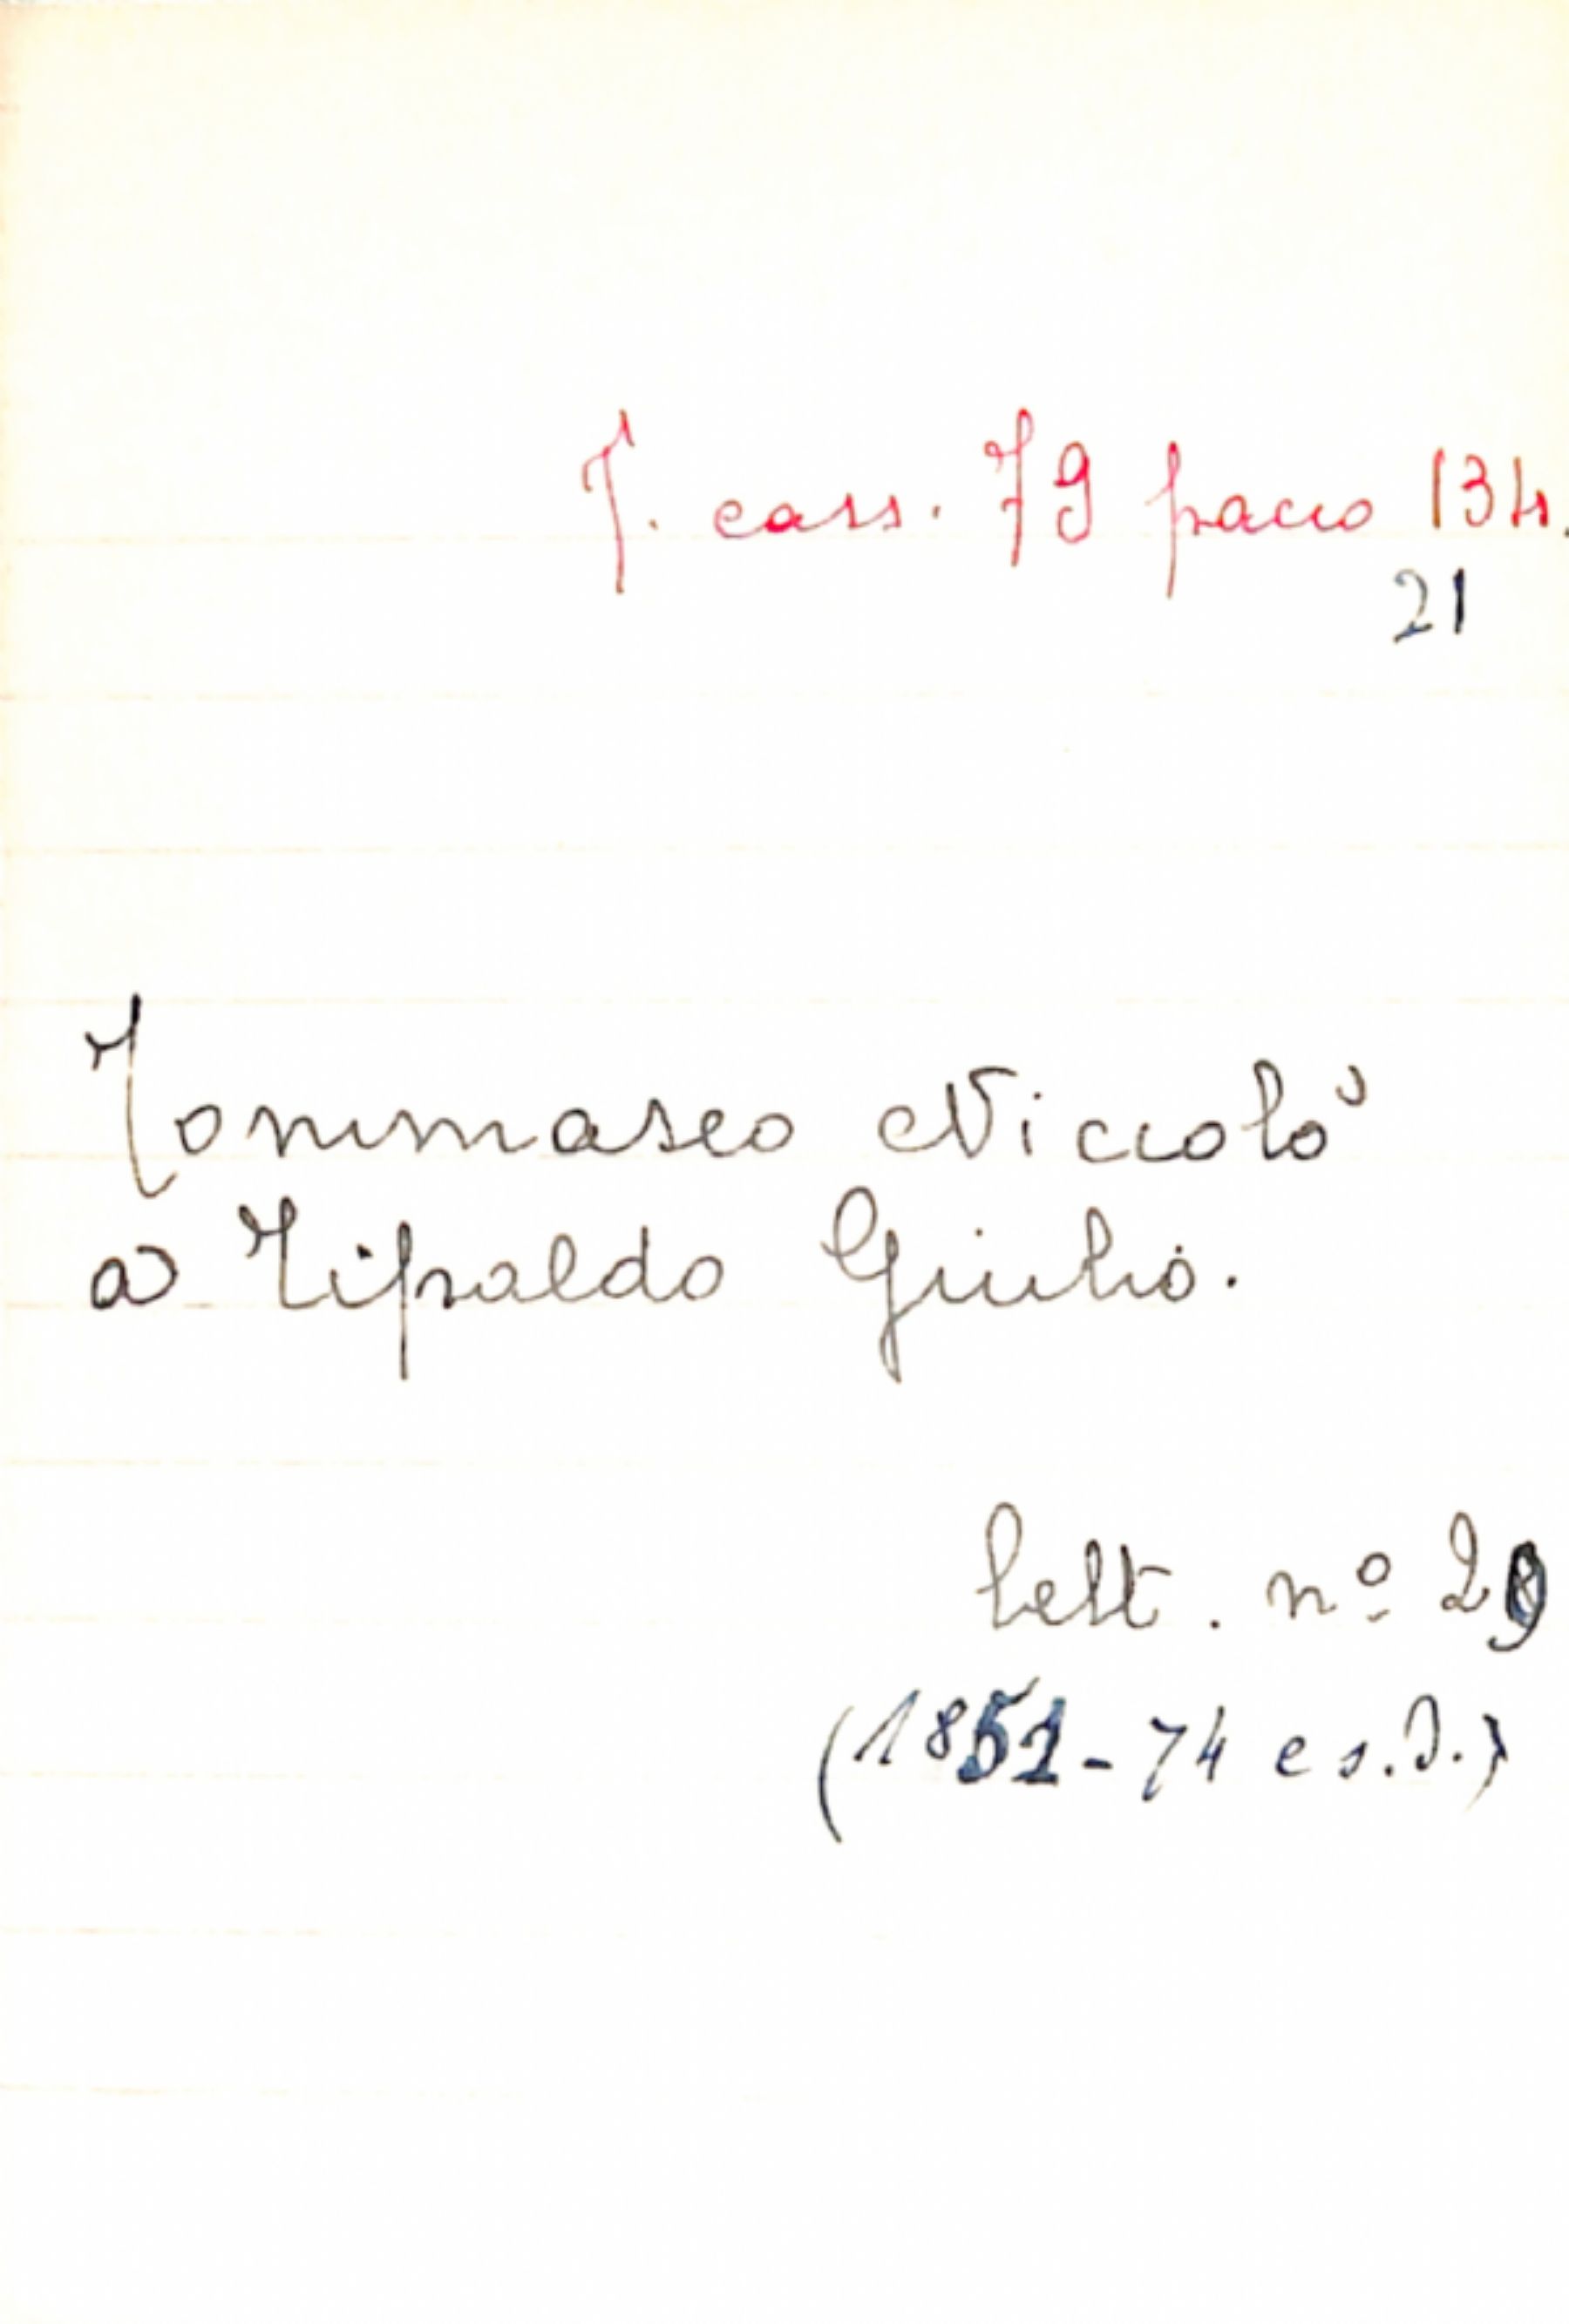 T. cass. 79 pacco 134.
21
Tommaseo Niccolò
a Tipaldo Giulio.
lett. nº 29
(1852-74 e s.d.)